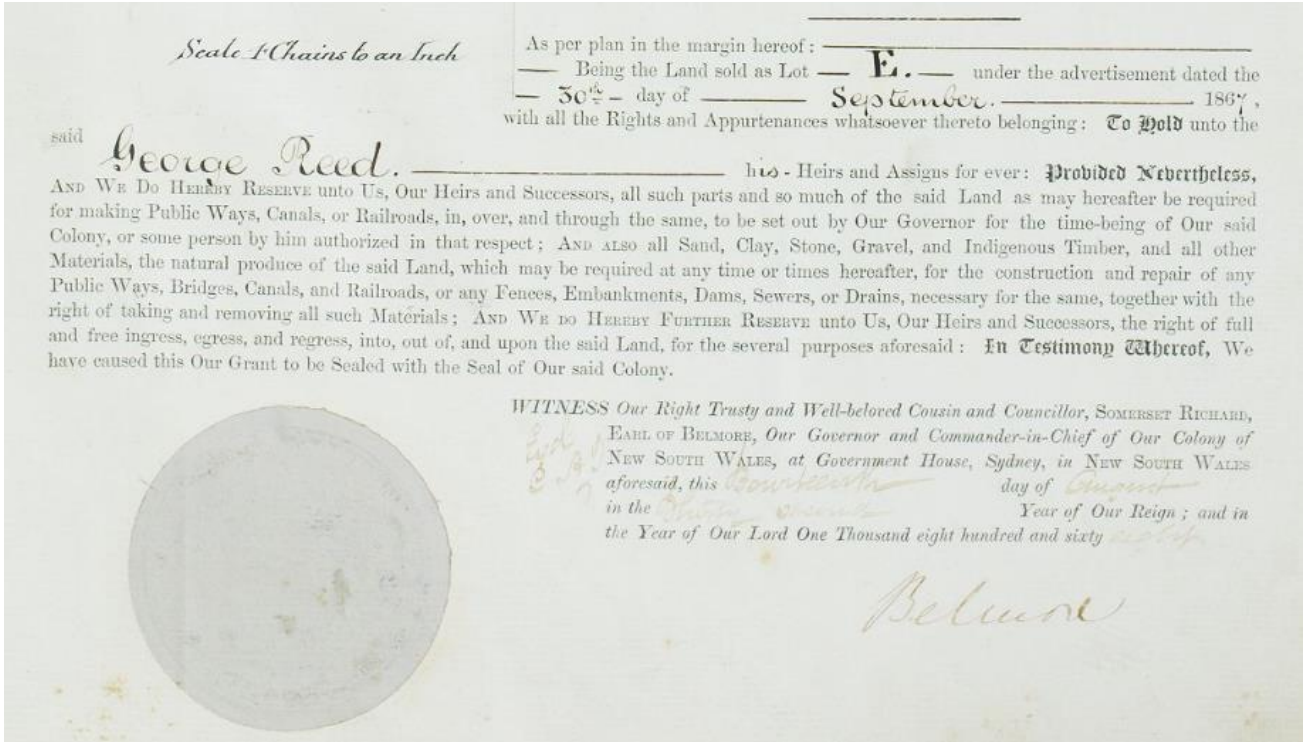 Scale 4 Chains to an Inch
As per plan in the margin hereof:
Being the Land sold as Lot — E. — under the advertisement dated the
— 30th – day of — September. — 1867,
with all the Rights and Appurtenances whatsoever thereto belonging: To Hold unto the
said
George Reed. — his - Heirs and Assigns for ever: Provided Nevertheless,
AND WE DO HEREBY RESERVE unto Us, Our Heirs and Successors, all such parts and so much of the said Land as may hereafter be required
for making Public Ways, Canals, or Railroads, in, over, and through the same, to be set out by Our Governor for the time-being of Our said
Colony, or some person by him authorized in that respect; AND ALSO all Sand, Clay, Stone, Gravel, and Indigenous Timber, and all other
Materials, the natural produce of the said Land, which may be required at any time or times hereafter, for the construction and repair of any
Public Ways, Bridges, Canals, and Railroads, or any Fences, Embankments, Dams, Sewers, or Drains, necessary for the same, together with the
right of taking and removing all such Materials; AND WE DO HEREBY FURTHER RESERVE unto Us, Our Heirs and Successors, the right of full
and free ingress, egress, and regress, into, out of, and upon the said Land, for the several purposes aforesaid: In Testimony Whereof, We
have caused this Our Grant to be Sealed with the Seal of Our said Colony.
WITNESS Our Right Trusty and Well-beloved Cousin and Councillor, SOMERSET RICHARD,
EARL OF BELMORE, Our Governor and Commander-in-Chief of Our Colony of
NEW SOUTH WALES, at Government House, Sydney, in NEW SOUTH WALES
aforesaid, this Fourteenth day of August
in the Thirty second Year of Our Reign; and in
the Year of Our Lord One Thousand eight hundred and sixty eight
Belmore